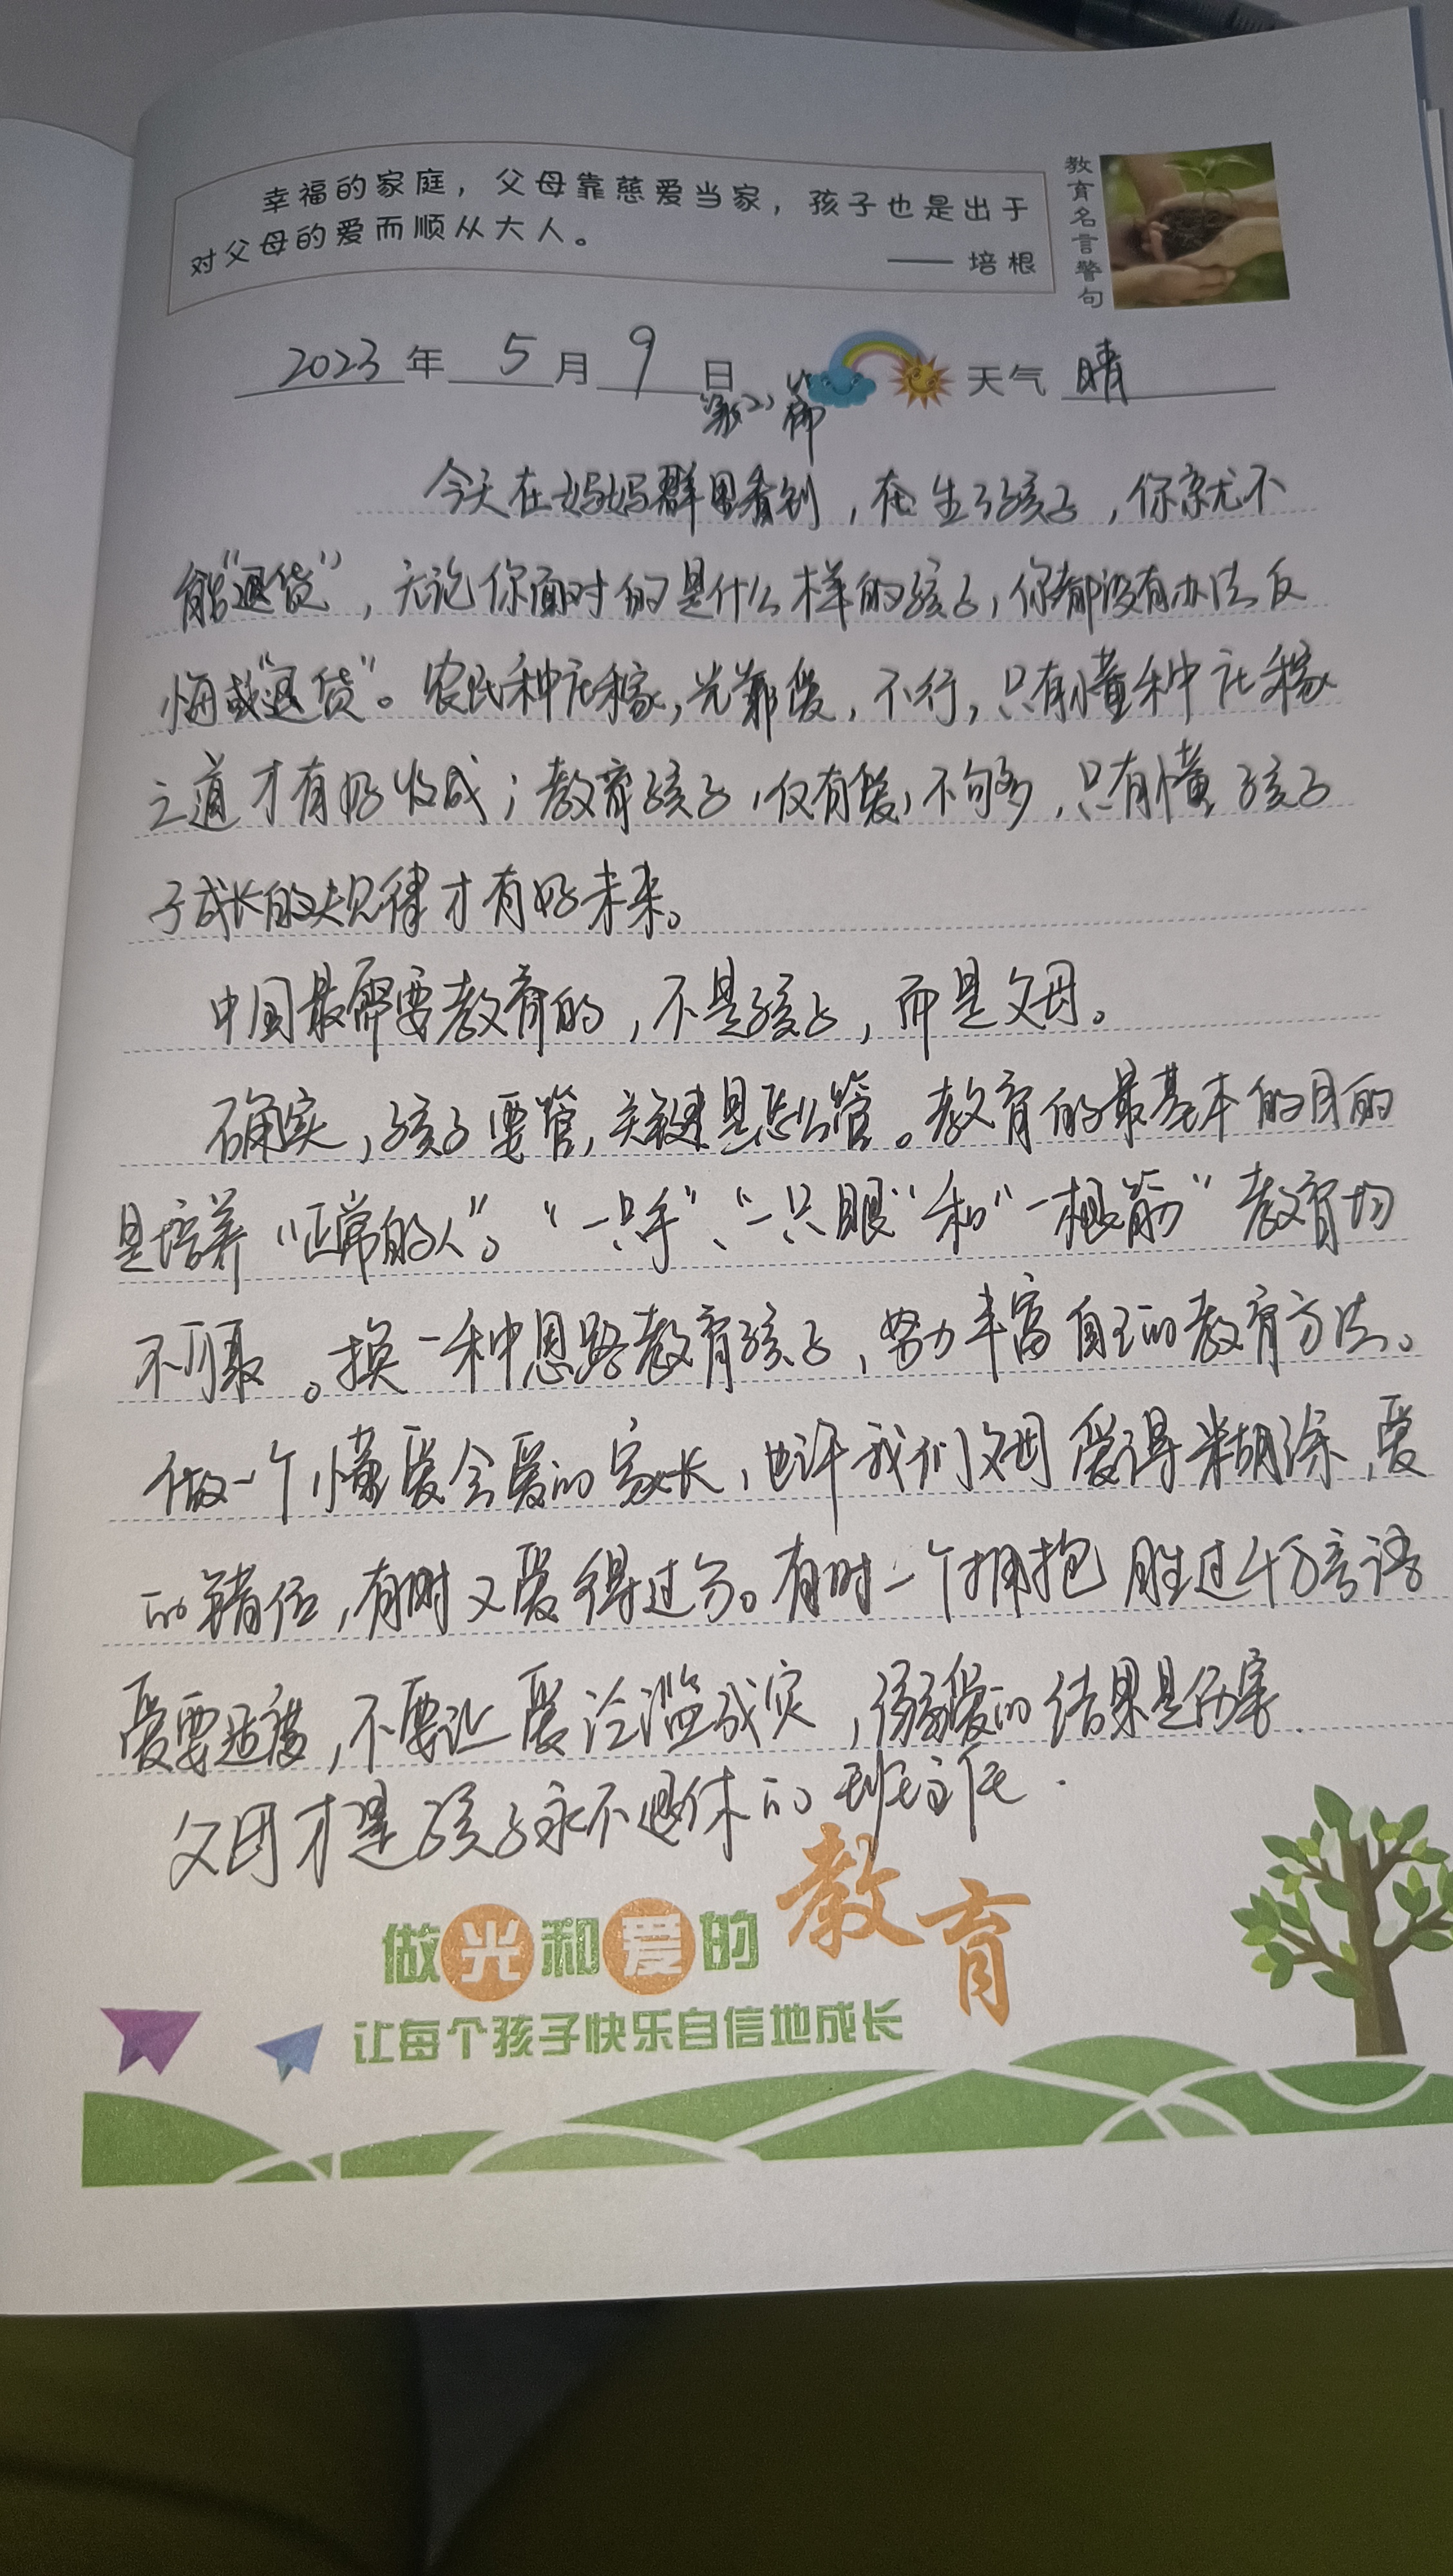 幸福的家庭，父母靠慈爱当家，孩子也是出于
对父母的爱而顺从大人。
——培根
教育名言警句
2023年5月9日 天气 晴
第21篇
今天在妈妈群里看到，在生了孩子，你就不
能“退货”，无论你面对的是什么样的孩子，你都没有办法反
悔或“退货”。农民种庄稼，光靠爱，不行，只有懂种庄稼
之道才有好收成；教育孩子，仅有爱，不够，只有懂孩子
子成长的规律才有好未来。
中国最需要教育的，不是孩子，而是父母。
确实，孩子要管，关键是怎么管。教育的最基本的目的
是培养“正常的人”。“一只手”、“一只眼”和“一根筋”教育均
不可取。换一种思路教育孩子，努力丰富自己的教育方法。
做一个懂爱会爱的家长，也许我们父母爱得糊涂，爱
的错位，有时又爱得过分。有时一个拥抱胜过千万言语
爱要适度，不要让爱泛滥成灾，溺爱的结果是伤害.
父母才是孩子永不退休的班主任.
做光和爱的教育
让每个孩子快乐自信地成长